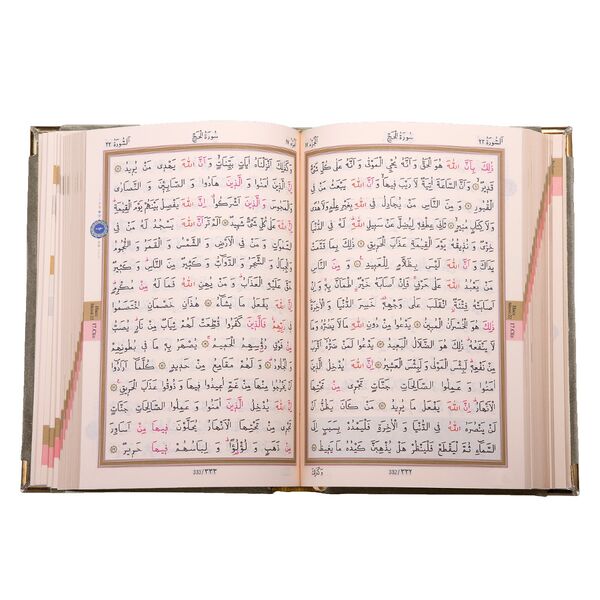 اَلسُّورَةُ ٢٢
سُورَةُ الْحَجِّ
ذٰلِكَ بِاَنَّ اللّٰهَ هُوَ الْحَقُّ وَ اَنَّهُ يُحْيِ الْمَوْتٰى وَ اَنَّهُ عَلٰى كُلِّ شَيْءٍ
قَدِيرٌ ۞ وَ اَنَّ السَّاعَةَ اٰتِيَةٌ لَا رَيْبَ فِيهَا وَ اَنَّ اللّٰهَ يَبْعَثُ مَنْ فِي
الْقُبُورِ ۞ وَ مِنَ النَّاسِ مَنْ يُجَادِلُ فِي اللّٰهِ بِغَيْرِ عِلْمٍ وَلَا هُدًى
وَلَا كِتَابٍ مُنِيرٍ ۞ ثَانِيَ عِطْفِهِ لِيُضِلَّ عَنْ سَبِيلِ اللّٰهِ لَهُ فِي الدُّنْيَا
خِزْيٌ وَ نُذِيقُهُ يَوْمَ الْقِيٰمَةِ عَذَابَ الْحَرِيقِ ۞ ذٰلِكَ بِمَا قَدَّمَتْ
يَدَاكَ وَ اَنَّ اللّٰهَ لَيْسَ بِظَلَّامٍ لِلْعَبِيدِ ۞ وَ مِنَ النَّاسِ مَنْ يَعْبُدُ
اللّٰهَ عَلٰى حَرْفٍ فَاِنْ اَصَابَهُ خَيْرٌ اطْمَاَنَّ بِهِ وَ اِنْ
اَصَابَتْهُ فِتْنَةٌ انْقَلَبَ عَلٰى وَجْهِهِ خَسِرَ الدُّنْيَا وَ الْاٰخِرَةَ
ذٰلِكَ هُوَ الْخُسْرَانُ الْمُبِينُ ۞ يَدْعُوا مِنْ دُونِ اللّٰهِ مَا لَا يَضُرُّهُ وَ مَا
لَا يَنْفَعُهُ ذٰلِكَ هُوَ الضَّلَالُ الْبَعِيدُ ۞ يَدْعُوا لَمَنْ ضَرُّهُ اَقْرَبُ
مِنْ نَفْعِهِ لَبِئْسَ الْمَوْلٰى وَ لَبِئْسَ الْعَشِيرُ ۞ اِنَّ اللّٰهَ يُدْخِلُ الَّذِينَ
اٰمَنُوا وَ عَمِلُوا الصَّالِحَاتِ جَنَّاتٍ تَجْرِي مِنْ تَحْتِهَا
الْاَنْهَارُ اِنَّ اللّٰهَ يَفْعَلُ مَا يُرِيدُ ۞ مَنْ كَانَ يَظُنُّ اَنْ لَنْ
يَنْصُرَهُ اللّٰهُ فِي الدُّنْيَا وَ الْاٰخِرَةِ فَلْيَمْدُدْ بِسَبَبٍ اِلَى
السَّمَاءِ ثُمَّ لْيَقْطَعْ فَلْيَنْظُرْ هَلْ يُذْهِبَنَّ كَيْدُهُ مَا يَغِيظُ ۞
332/٣٣٢
وَكَذٰلِكَ
اَلسُّورَةُ ٢٢
سُورَةُ الْحَجِّ
وَ كَذٰلِكَ اَنْزَلْنَاهُ اٰيَاتٍ بَيِّنَاتٍ وَ اَنَّ اللّٰهَ يَهْدِي مَنْ يُرِيدُ ۞
اِنَّ الَّذِينَ اٰمَنُوا وَ الَّذِينَ هَادُوا وَ الصَّابِئِينَ وَ النَّصَارٰى
وَ الْمَجُوسَ وَ الَّذِينَ اَشْرَكُوا اِنَّ اللّٰهَ يَفْصِلُ بَيْنَهُمْ يَوْمَ الْقِيٰمَةِ
اِنَّ اللّٰهَ عَلٰى كُلِّ شَيْءٍ شَهِيدٌ ۞ اَلَمْ تَرَ اَنَّ اللّٰهَ يَسْجُدُ لَهُ مَنْ فِي
السَّمٰوَاتِ وَ مَنْ فِي الْاَرْضِ وَ الشَّمْسُ وَ الْقَمَرُ وَ النُّجُومُ
وَ الْجِبَالُ وَ الشَّجَرُ وَ الدَّوَابُّ وَ كَثِيرٌ مِنَ النَّاسِ وَ كَثِيرٌ
حَقَّ عَلَيْهِ الْعَذَابُ وَ مَنْ يُهِنِ اللّٰهُ فَمَا لَهُ مِنْ مُكْرِمٍ
اِنَّ اللّٰهَ يَفْعَلُ مَا يَشَاءُ ۞ هٰذَانِ خَصْمَانِ اخْتَصَمُوا
فِي رَبِّهِمْ فَالَّذِينَ كَفَرُوا قُطِّعَتْ لَهُمْ ثِيَابٌ مِنْ نَارٍ يُصَبُّ
مِنْ فَوْقِ رُؤُسِهِمُ الْحَمِيمُ ۞ يُصْهَرُ بِهِ مَا فِي بُطُونِهِمْ
وَ الْجُلُودُ ۞ وَ لَهُمْ مَقَامِعُ مِنْ حَدِيدٍ ۞ كُلَّمَا اَرَادُوا
اَنْ يَخْرُجُوا مِنْهَا مِنْ غَمٍّ اُعِيدُوا فِيهَا وَ ذُوقُوا عَذَابَ الْحَرِيقِ ۞
اِنَّ اللّٰهَ يُدْخِلُ الَّذِينَ اٰمَنُوا وَ عَمِلُوا الصَّالِحَاتِ جَنَّاتٍ
تَجْرِي مِنْ تَحْتِهَا الْاَنْهَارُ يُحَلَّوْنَ فِيهَا مِنْ اَسَاوِرَ
مِنْ ذَهَبٍ وَ لُؤْلُؤًا وَ لِبَاسُهُمْ فِيهَا حَرِيرٌ ۞
333/٣٣٣
17.Cüz
17.Cüz